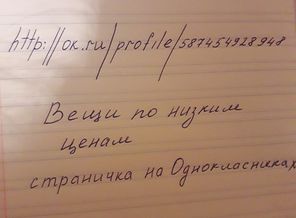 http://ok.ru/profile/587454928948
Вещи по низким
ценам
страничка на Однокласниках